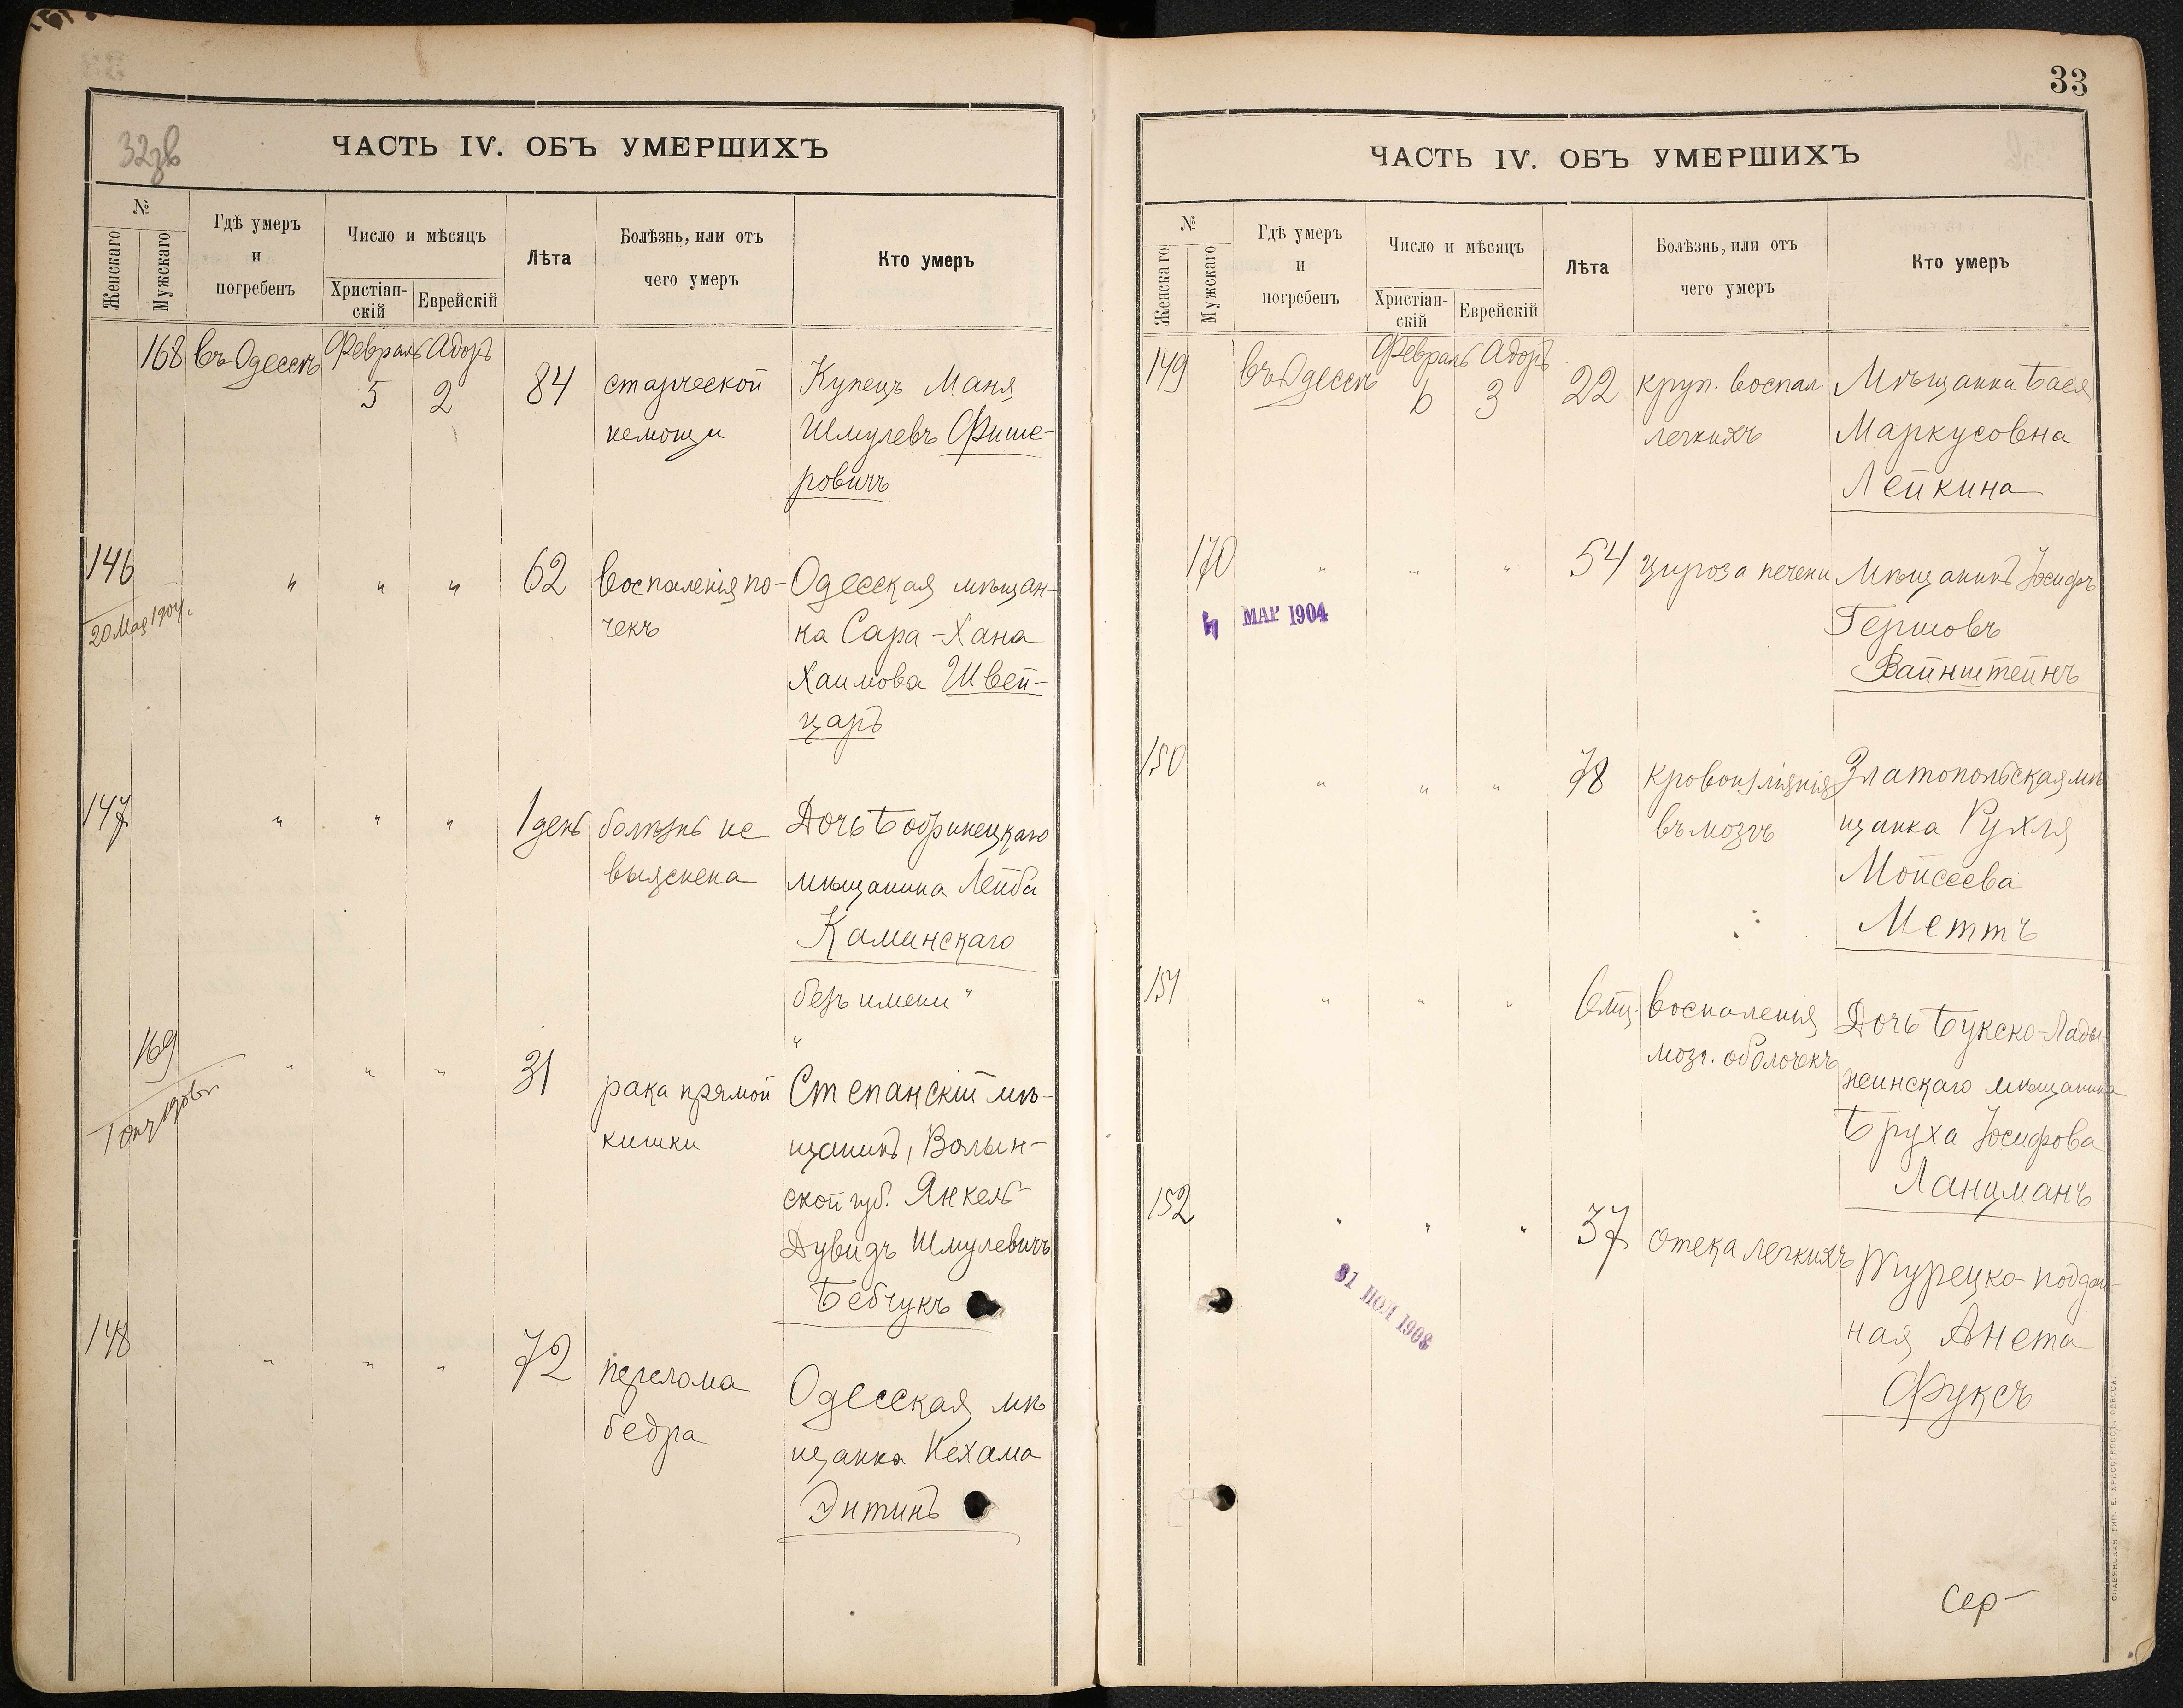 32зв
ЧАСТЬ IV. ОБЪ УМЕРШИХЪ
№
Женскаго
Мужскаго
Гдѣ умеръ
и
погребенъ
Число и мѣсяцъ
Христіан-
скій
Еврейскій
Лѣта
Болѣзнь, или отъ
чего умеръ
Кто умеръ
168 въ Одессѣ Февраль Адоръ
5 2 84 старческой Купецъ Маня
немощи Шмулевъ Фише-
ровичъ
146 " " " 62 воспаленія по- Одесская мѣщан-
20 Мая 1904 г. чекъ ка Сара-Хана
Хаимова Швей-
царъ
147 " " " 1 день болѣзнь не Дочь Бобринецкаго
выяснена мѣщанина Лейба
Каминскаго
безъ имени "
"
169 " " " 31 рака прямой Степанскій мѣ-
кишки щанинъ, Волын-
ской губ. Янкель-
Дувидъ Шмулевичъ
Бебчукъ
148 " " " 72 перелома Одесская мѣ
бедра щанка Нехама
Энтинъ
33
ЧАСТЬ IV. ОБЪ УМЕРШИХЪ
№
Женскаго
Мужскаго
Гдѣ умеръ
и
погребенъ
Число и мѣсяцъ
Христіан-
скій
Еврейскій
Лѣта
Болѣзнь, или отъ
чего умеръ
Кто умеръ
149 въ Одессѣ Февраль Адоръ
6 3 22 круп. воспал Мѣщанка Бася
легкихъ Маркусовна
Лейкина
170 " " " 54 цироза печени Мѣщанинъ Іосифъ
МАР 1904 Гершовъ
Вайнштейнъ
150 " " " 78 кровоизліянія Златопольская мѣ
въ мозгъ щанка Рухля
Мойсеева
Меттъ
151 " " " 6 мц. воспаленія Дочь Букско-Лады-
мозг. оболочекъ жинскаго мѣщанина
Бруха Іосифова
Ланцманъ
152 " " " 37 отека легкихъ Турецко-поддан-
31 ІЮЛ 1908 ная Анета
Фуксъ
Сер-
СЛАВЯНСКАЯ ТИП. Е. ХРИСОГЕЛОСЪ. ОДЕССА.